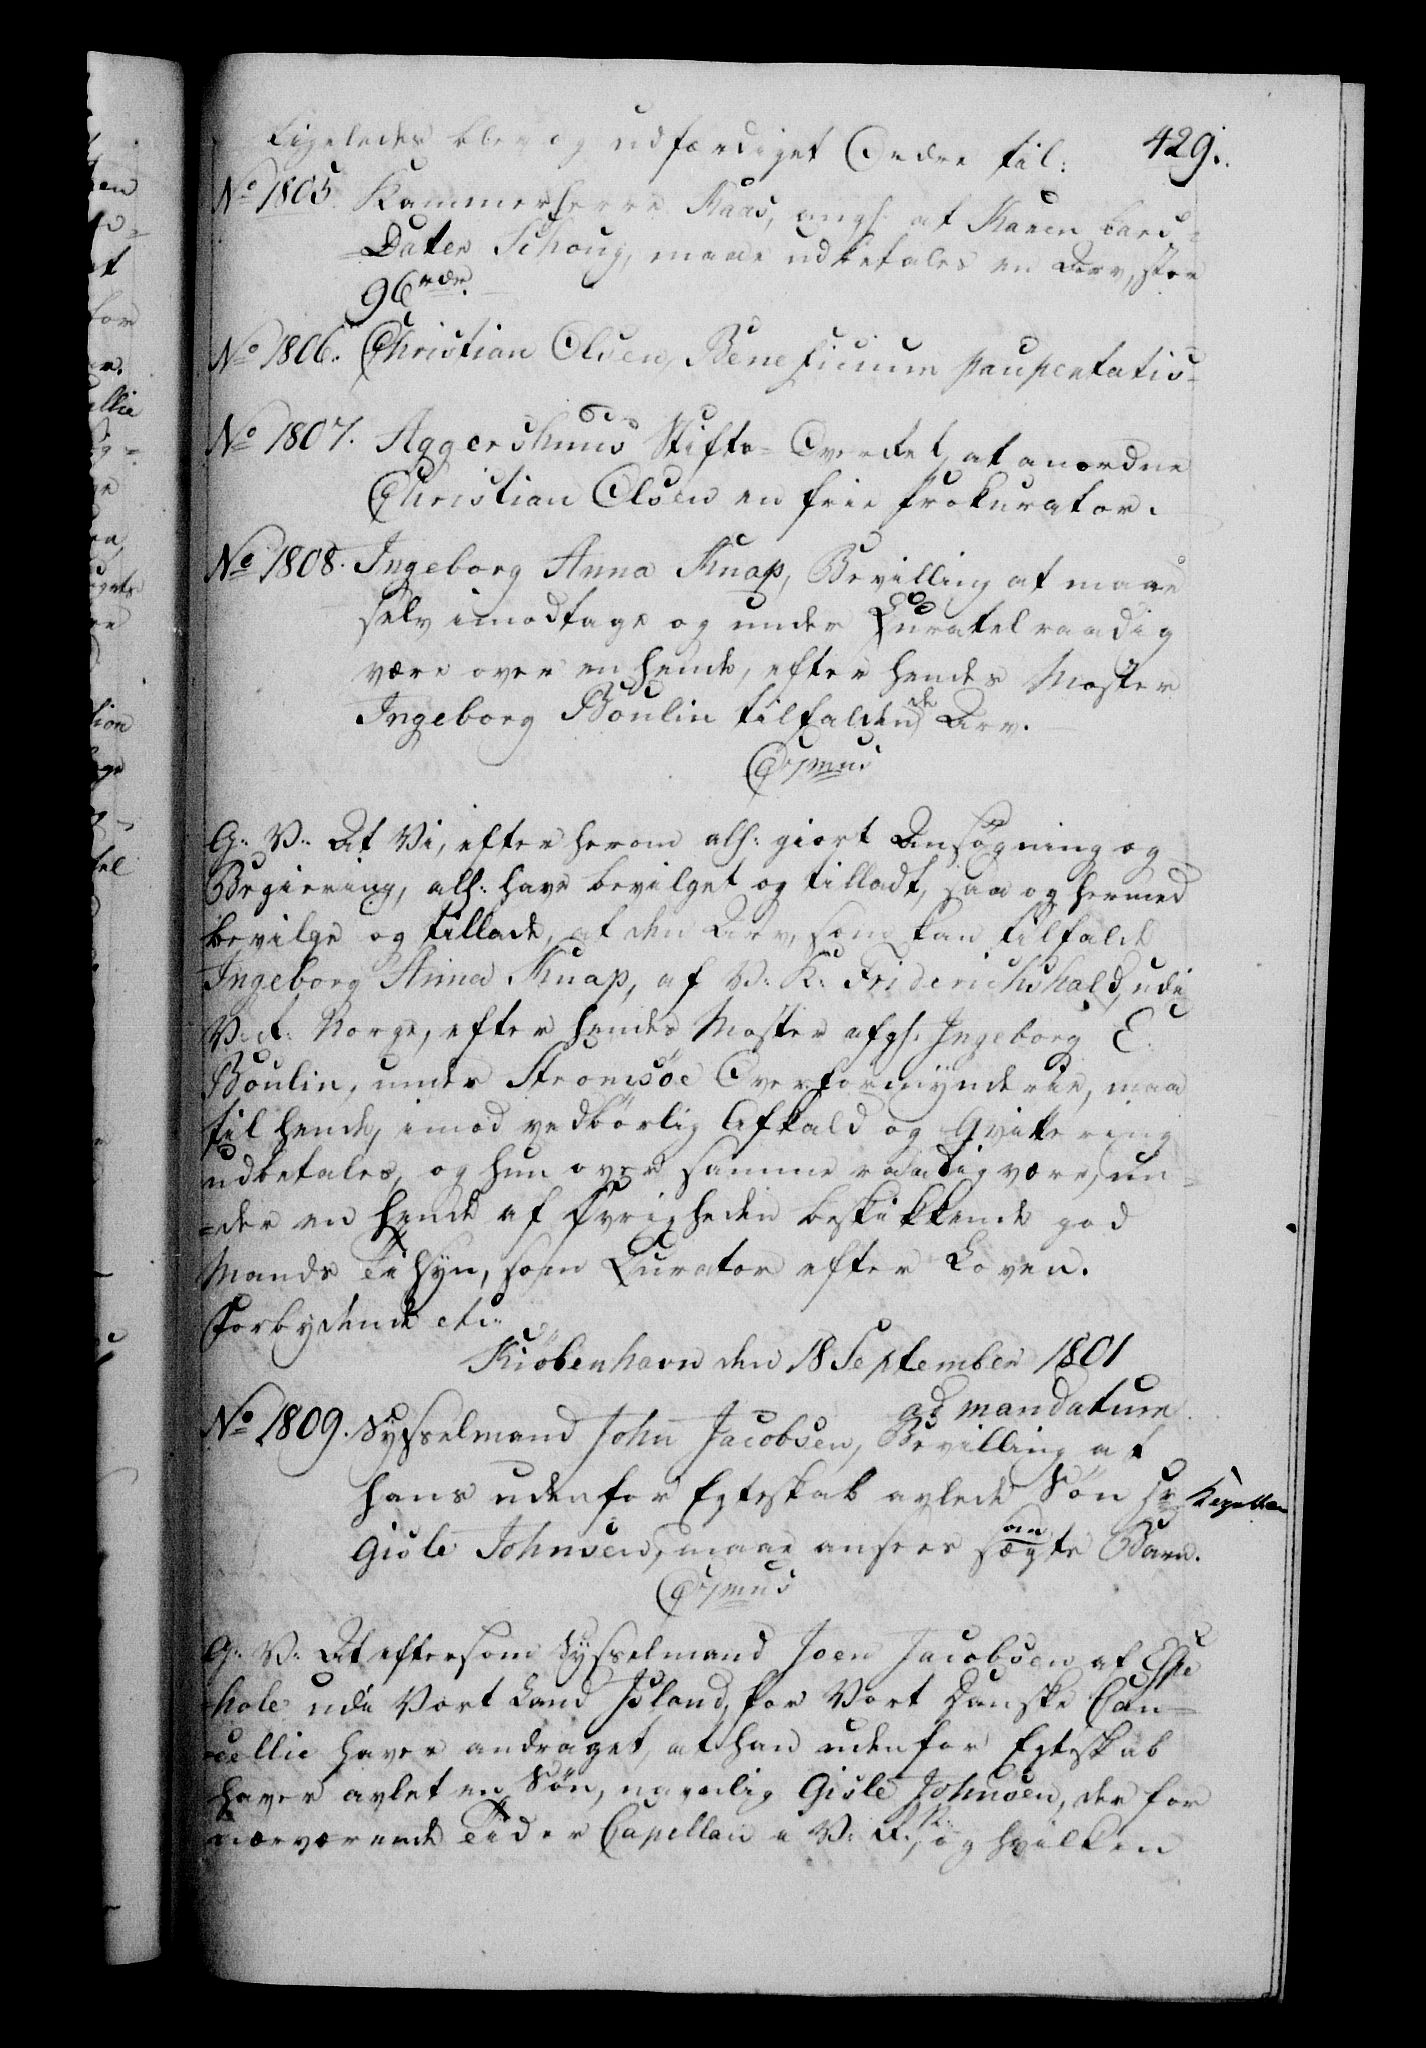 429.
Ligeledes blev og udfærdiget Ordre til:
No 1805. Kammerherre Kaas, angh. at Karen Lars-
Datter Schoug, maae udbetales en Arv, stor
96 rdr.
No 1806. Christian Olsen, Beneficium paupertatis-
No 1807. Aggershuus Stifts-Overret, at anordne
Christian Olsen en frie Prokurator.
No 1808. Ingeborg Anna Knap, Bevilling at maae
selv imodtage og under Curatel raadig
være over en hende, efter hendes Moster
Ingeborg Boulin tilfaldende Arv.
G. V. At Vi, efter herom allh: giort Ansøgning og
Begiering, allh: have bevilget og tilladt, saa og hermed
bevilge og tillade, at den Arv, som kan tilfalde
Ingeborg Anna Knap, af V: K: Friderichshald, udi
V. R: Norge, efter hendes Moster afgh. Ingeborg E.
Boulin, under Stromsöe Overformynderie, maa
til hende, imod vedbörlig Afkald og Qvittering
udbetales, og hun over samme raadig være, un-
-der en hende af Øvrigheden beskikkende god
Mands Tilsyn, som Curator efter Loven.
Forbydende etc:
Kiöbenhavn den 18 September 1801
ad mandatum
No 1809. Sysselmand John Jacobsen, Bevilling at
hans udenfor Egteskab avlede Sön Hr Kapellan
Gisle Johnsen, maae ansees som ægte Barn.
G. V. At eftersom Sysselmand Joen Jacobsen af Espe
hole udi Vort Land Island, for Vort Danske Can-
-cellie haver andraget, at han udenfor Egteskab
haver avlet en Sön, navnlig Gisle Johnsen, der for
nærværende Tid er Capellan i V: R: N:, og hvilken